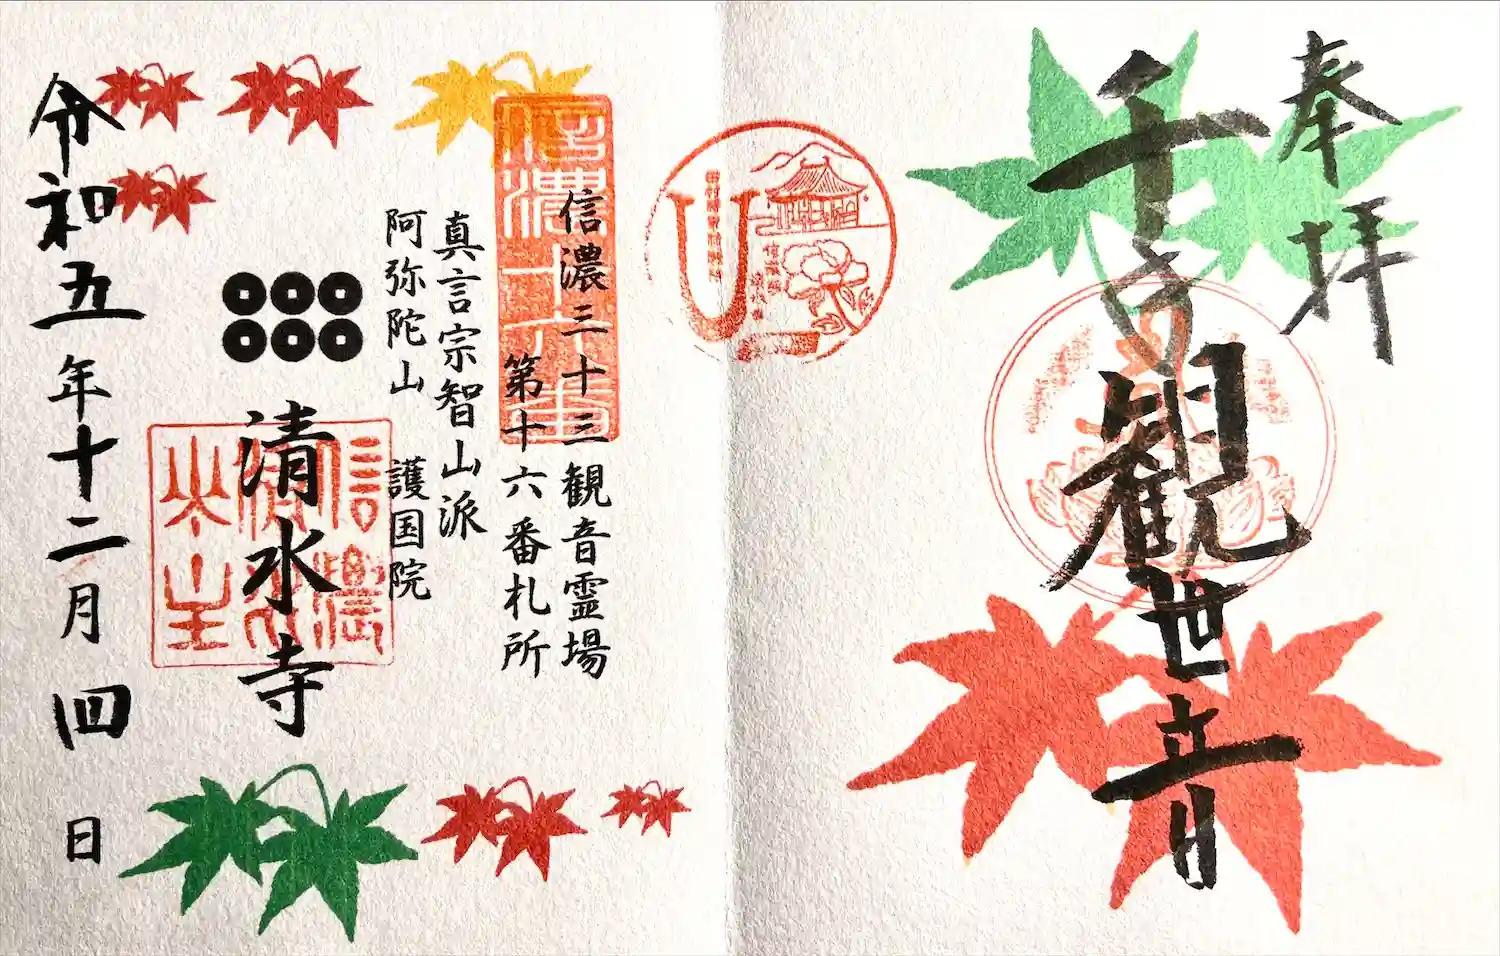 奉拝
千手観世音
信濃三十三観音霊場
第十六番札所
真言宗智山派
阿弥陀山 護国院
清水寺
令和五年十二月四日
信濃十六番
U